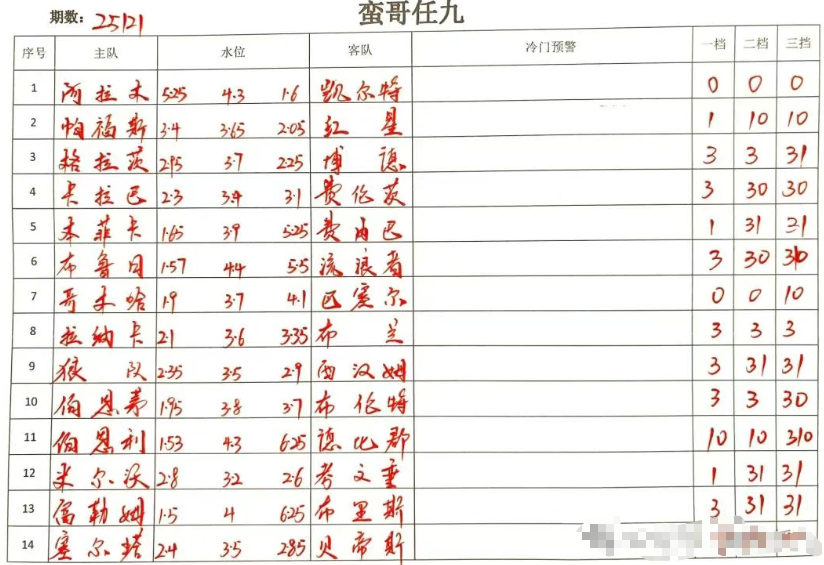 期数: 25121 蛮哥任九
序号 主队 水位 客队 冷门预警 一档 二档 三挡
1 阿拉木 5.25 4.3 1.6 凯尔特 0 0 0
2 帕福斯 3.4 3.65 2.05 红星 1 10 10
3 格拉茨 2.95 3.7 2.25 博德 3 3 31
4 卡拉巴 2.3 3.4 3.1 费伦茨 3 30 30
5 本菲卡 1.65 3.9 5.25 费内巴 1 31 31
6 布鲁日 1.57 4.4 5.5 流浪者 3 30 310
7 哥本哈 1.9 3.7 4.1 巴塞尔 0 0 10
8 拉纳卡 2.1 3.6 3.35 布兰 3 3 3
9 狼队 2.35 3.5 2.9 西汉姆 3 31 31
10 伯恩茅 1.95 3.8 3.7 布伦特 3 3 30
11 伯恩利 1.53 4.3 6.25 德比郡 10 10 310
12 米尔沃 2.8 3.2 2.6 考文垂 1 31 31
13 富勒姆 1.5 4 6.25 布里斯 3 31 31
14 塞尔塔 2.4 3.5 2.85 贝蒂斯